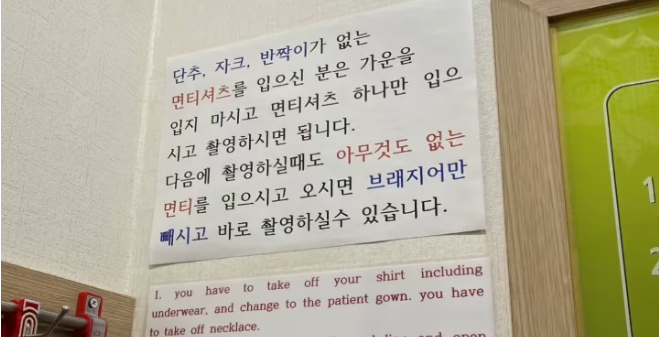 단추, 자크, 반짝이가 없는
면티셔츠를 입으신 분은 가운을
입지 마시고 면티셔츠 하나만 입으
시고 촬영하시면 됩니다.
다음에 촬영하실때도 아무것도 없는
면티를 입으시고 오시면 브래지어만
빼시고 바로 촬영하실수 있습니다.
1. you have to take off your shirt including
underwear, and change to the patient gown. you have
to take off necklace.
and open
1
2